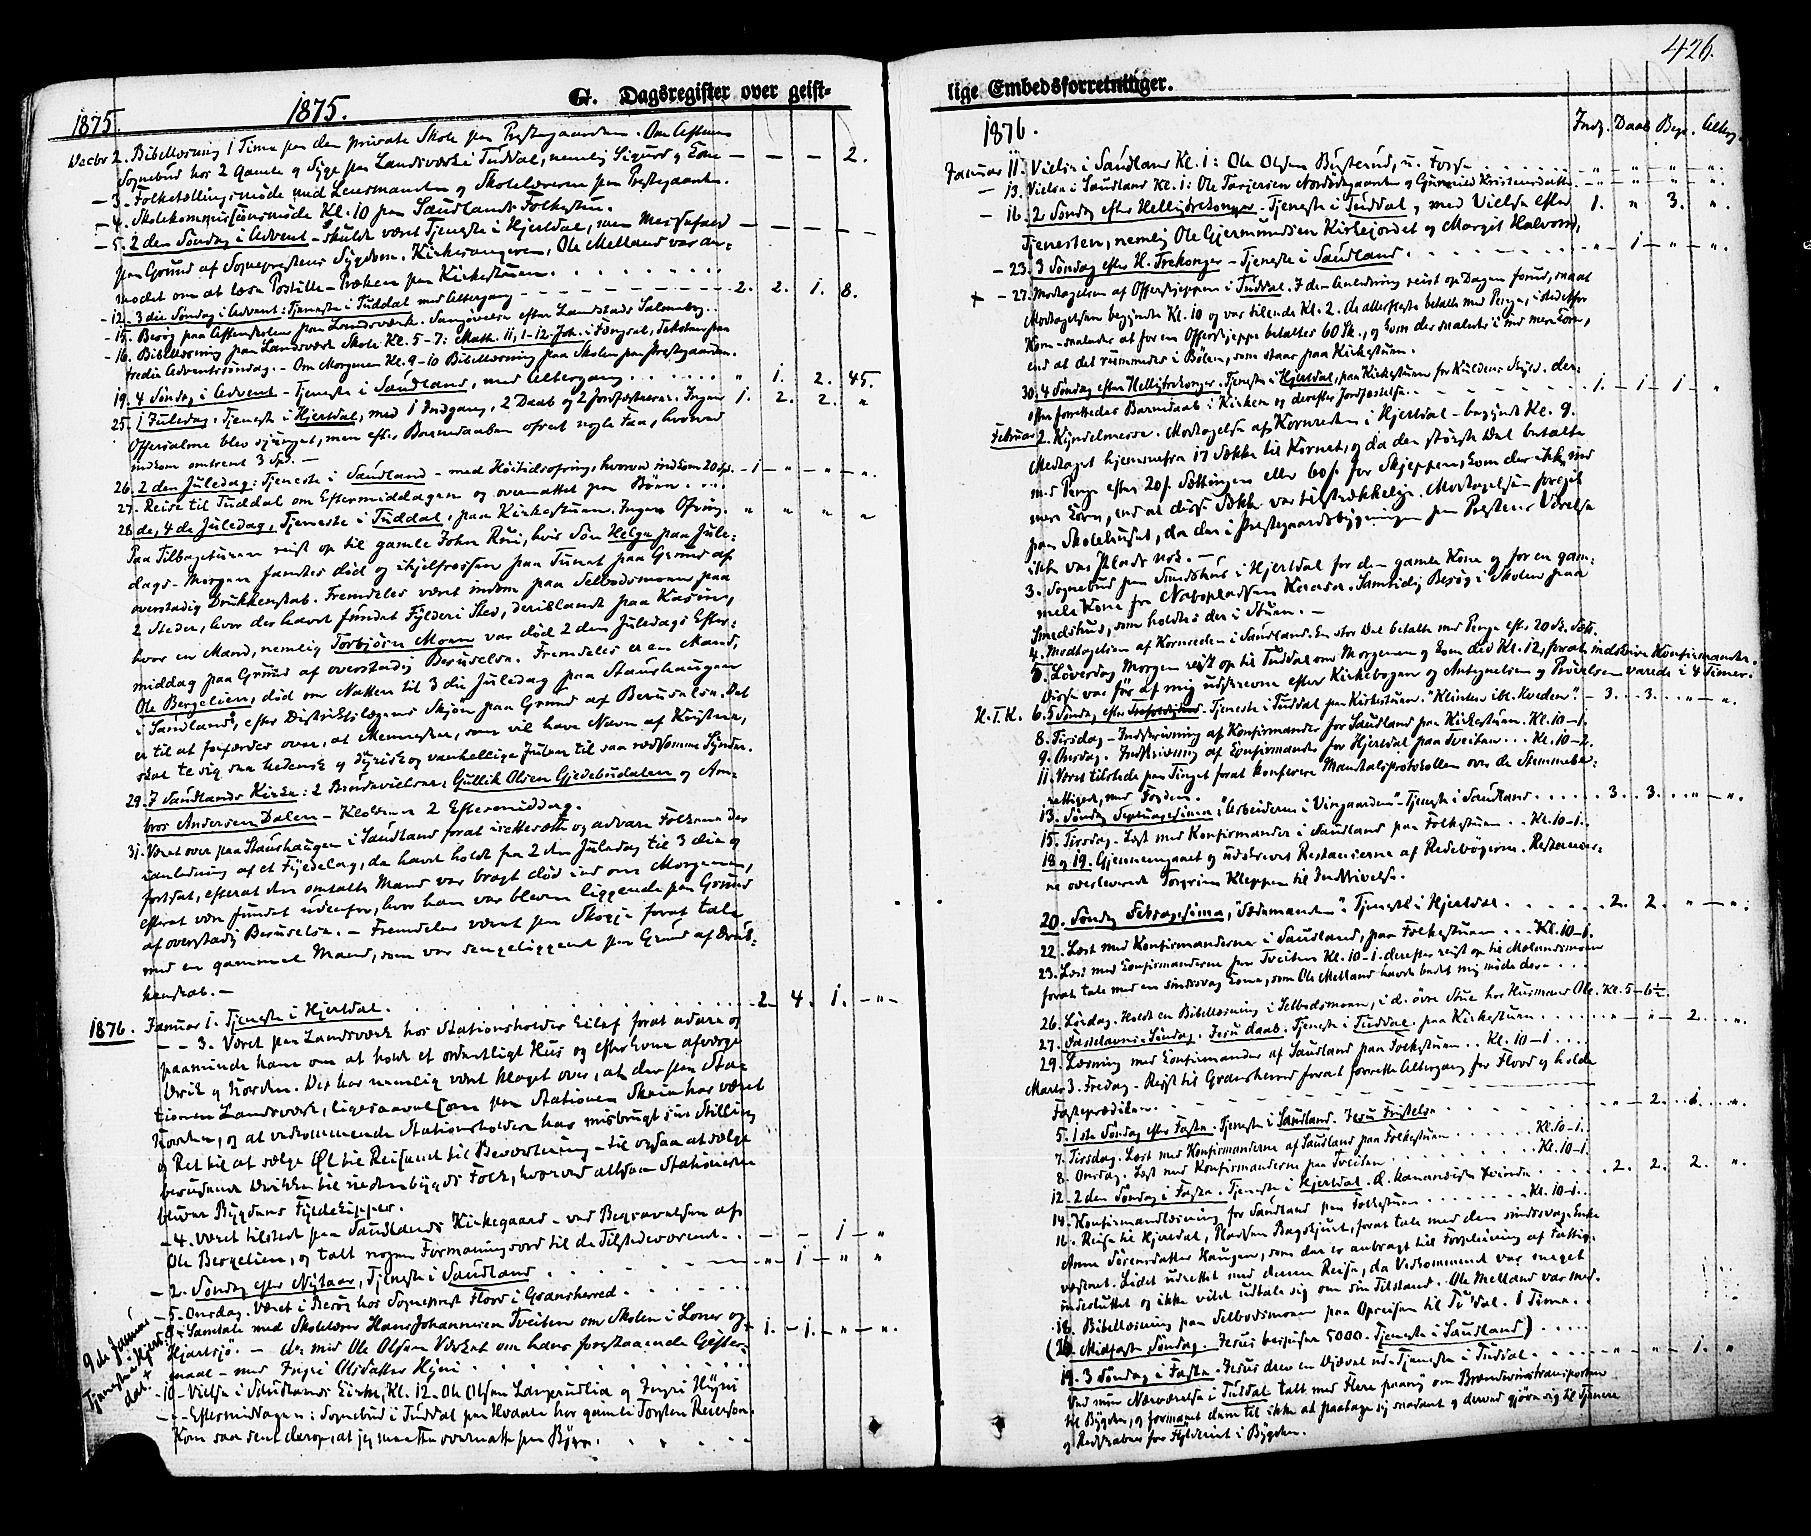 1875.
1875.
G. Dagsregister over geist-
Decbr 2. Bibellæsning 1 Time paa den private Skole paa Præstegaarden. Om Aftenen
Sognebud hos 2 Gamle og Syge paa Landsværk i Tuddal, nemlig Sigurd og Kone — — — 2.
— 3. Folketællingsmøde med Lensmanden og Skolelærerne paa Præstegaarden.
— 4. Skolekommissionsmøde Kl. 10 paa Saudlands Folkestue.
— 5. 2den Søndag i Advent — skulde været Tjeneste i Hjertdal, men Messefald — — — —
paa Grund af Sognepræstens Sygdom. Kirkesangeren, Ole Melland var an-
modet om at læse Postille-Præken paa Kirkestuen.
— 12. 3die Søndag i Advent: Tjeneste i Tuddal med Altergang — 2. 2. 1. 8.
— 15. Besøg paa Aftenskolen paa Landsværk. Sangøvelse efter Landstads Salmebog.
— 16. Bibellæsning paa Landsværk Skole Kl. 5-7: Math. 11, 1-12. Joh. i Fængsel, Teksten paa
tredie Adventssøndag. — Om Morgenen Kl. 9-10 Bibellæsning paa Skolen paa Præstegaarden.
19. 4 Søndag i Advent — Tjeneste i Saudland, med Altergang " 1. 2. 45.
25. 1 Juledag. Tjeneste i Hjertdal, med 1 Indgang, 2 Daab og 2 Jordfæstelser. Ingen 1. 2. 2. "
Offersalme blev sjunget, men efter Barnedaaben ofret nogle Faa, hvorved
indkom omtrent 3 Spd. —
26. 2den Juledag: Tjeneste i Saudland — med Høitidsofring, hvorved indkom 20 Sp. — 1 — " — " — " .
27. Reise til Tuddal om Eftermiddagen og overnattet paa Bøen.
28de, 4de Juledag, Tjeneste i Tuddal, paa Kirkestuen. Ingen Ofring. " " " "
Paa Tilbageturen reist op til gamle John Rui, hvis Søn Helge paa Jule-
dags-Morgen fandtes død og ihjelfrossen paa Tunet paa Grund af
overstadig Drukkenskab. Fremdeles været indom paa Selbodsmoen paa
2 Steder, hvor der havde fundet Fylderi Sted, deriblandt paa Kasin,
hvor en Mand, nemlig Torbjørn Moen var død 2den Juledags Efter-
middag paa Grund af overstadig Beruselse. Fremdeles er en Mand,
Ole Bergelien, død om Natten til 3die Juledag paa Staurhaugen
i Saudland, efter Distriktslægens Skjøn paa Grund af Beruselse. Det
er til at forfærdes over, at Mennesker, som vil have Navn af Kristne,
skal te sig saa hedensk og dyrisk og vanhellige Julen til saa vedsomme Synder.
29. I Saudlands Kirke: 2 Brudevielser, Gullik Olsen Gjedebudalen og Am-
bros Andersen Dalen — Klokken 2 Eftermiddag.
31. Været over paa Staurhaugen i Saudland forat irettesætte og advare Folkene der
i anledning af et Fyldelag, de havde holdt fra 2den Juledag til 3die og
fortsat, efterat den omtalte Mand var bragt død ind om Morgenen,
efterat være fundet udenfor, hvor han var bleven liggende paa Grund
af overstadig Beruselse. — Fremdeles været paa Skogje forat tale
med en gammel Mand, som var sengeliggende paa Grund af Druk-
kenskab. —
1876. Januar 1. Tjeneste i Hjertdal. 2 — 4. 1. — " —
— 3. Været paa Landsværk hos Stationsholder Eilef forat advare og
paaminde ham om at holde et ordentligt Hus og efterkomme afværge
Drik og Horden. Det har nemlig været klaget over, at der paa Sta-
tionen Landsværk, ligesaavelsom paa Stationen Skeie har været
Horden, og at vedkommende Stationsholdere har misbrugt sin Stilling
og Ret til at sælge Øl til Reisende til Beværtning — til ogsaa at sælge
berusende Drikke til indenbygds Folk, hvorved altsaa Stationerne
bliver Bygdens Fyldekipper.
— 4. Været tilstede paa Saudlands Kirkegaard — ved Begravelsen af
Ole Bergelien, og talt nogen Formaningsord til de Tilstedeværende. — — 1 — "
— 2. Søndag efter Nytaar, Tjeneste i Saudland — " — 1 — " — "
— 5. Onsdag. Været i Besøg hos Sognepræst Flood i Gransherred.
8. Samtale med Skolelærer Hans Johannesen Tveiten om Skolen i Loner og — 1. — 1. — " — ".
Hjartsjø. — do. med Ole Olsen Værket om hans forestaaende Gifter-
maal — med Ingri Olsdatter Hyni
9de Januar
Tjeneste i Hjert-
dal. +
10. — Vielse i Saudlands Kirke, Kl. 12. Ole Olsen Langerudlia og Ingri Hyni
— Eftermiddagen: Sognebud i Tuddal paa Hvdale hos gamle Torsten Reierson.
Kom saa sent derop, at jeg maatte overnatte paa Bøen.
426.
lige Embedsforretninger.
1876.
Indg. Daab Begr. Alterg.
Januar 11. Vielse i Saudland Kl. 1: Ole Olsen Busterud, u. Forse " " " "
— 13. Vielse i Saudland Kl. 1: Ole Tarjersen Nordbøgaarden og Gunnild Kristensdatter — " — " — " "
— 16. 2 Søndag efter Helligtrekonger — Tjeneste i Tuddal, med Vielse efter 1. " 3. ".
Tjenesten, nemlig Ole Gjermundsen Kirkejordet og Margit Halvorsd.
— 23. 3 Søndag efter H. Trekonger — Tjeneste i Saudland. — " — 1 — " — ".
+ — 27. Modtagelsen af Offerskjeppen i Tuddal. I den Anledning reist op Dagen forud, saaat
Modtagelsen begyndte Kl. 10 og var tilende Kl. 2. De allerfleste betalte med Penge, istedetfor
Korn — saaledes at for en Offerskjeppe betaltes 60 Sk., og kom der saaledes ind mere Korn,
end at det rummedes i Bølen, som staar paa Kirkestuen.
30. 4 Søndag efter Helligtrekonger. Tjeneste i Hjertdal, paa Kirkestuen for Kuldens Skyld. der-
efter forrettedes Barnedaab i Kirken og derefter Jordfæstelse. — 1. — 1 — 1 — "
Februar 2. Kyndelmesse. Modtagelse af Kornreden i Hjertdal — begyndt Kl. 9.
Medtaget hjemmefra 17 Sække til Kornet, og da den største Del betalte
med Penge efter 20 s. Sættingen eller 60 s. for Skjeppen, kom der ikke ind
mere Korn, end at disse Sække var tilstrækkelige. Modtagelsen foregik
paa Skolehuset, da der i Præstegaardsbygningen paa Præstens Værelse
ikke var Plads nok. —
3. Sognebud paa Smedshus i Hjertdal for den gamle Kone og for en gam-
mel Kone fra Nabopladsen Kaasa. Samtidig Besøg i Skolen paa
Smedshus, som holdtes der i Stuen. —
4. Modtagelsen af Kornreden i Saudland. En stor Del betalte med Penge efter 20 Sk. Sætt.
5. Løverdag Morgen reist op til Tuddal om Morgenen og kom did Kl. 12, forat indskrive Konfirmanter.
Disse var før af mig udskrevne efter Kirkebogen og Antegnelsen og Prøvelsen varede i 4 Timer.
H.T.K. 6. 5 Søndag efter — Tjeneste i Tuddal paa Kirkestuen. "Klinten ibl. Hveden". — 3. — 3. — " — ".
8. Tirsdag — Indskrivning af Konfirmander for Saudland paa Kirkestuen. Kl. 10-1.
9. Onsdag. Indskrivning af Konfirmander for Hjertdal paa Tveiten . . . Kl. 10-2.
11. Været tilstede paa Tinget forat konferere Mandtalsprotokollen over de Stemmebe-
rettigede, med Fogden.
13. Søndag Septuagesima, "Arbeiderne i Vingaarden" Tjeneste i Saudland — 3. — 3. — " — ".
15. Tirsdag. Læst med Konfirmander i Saudland paa Folkestuen . . Kl. 10-1.
18 og 19. Gjennemgaaet og udskrevet Restancierne af Redebøgerne. Restancer-
ne overleverede Torgrim Kleppen til Inddrivelse.
20. Søndag Seksagesima, "Sædemanden". Tjeneste i Hjertdal — 2. — 2. — " — ".
22. Læst med Konfirmanderne i Saudland, paa Folkestuen . . . Kl. 10-1.
23. Læst med Konfirmanderne paa Tveiten Kl. 10-1. derefter reist op til Mælandsmoen
forat tale med en sindssvag Kone, som Ole Melland havde budet mig møde der.
26. Lørdag. Holdt en Bibellæsning i Selbodsmoen, i d. øvre Stue hos Husmand Ole. Kl. 5 — 6½.
27. Fastelavns-Søndag. Jesu daab. Tjeneste i Tuddal. paa Kirkestuen — " — " — 2. — ".
29. Læsning med Konfirmander af Saudland paa Folkestuen . . Kl. 10-1
Marts 3. Fredag — Reist til Gransherred forat forrette Altergang for Flood og holde
Fasteprædiken.
5. 1ste Søndag efter Faste. Tjeneste i Saudland. Jesu Fristelse — " — 2. 1. ".
7. Tirsdag. Læst med Konfirmanderne af Saudland paa Folkestuen . . . Kl. 10-1.
8. Onsdag. Læst med Konfirmanderne paa Tveiten . . . Kl. 10-1.
12. 2den Søndag i Faste. Tjeneste i Hjertdal. d. kananæiske Kvinde 2. 2. 2. ".
14. Konfirmandlæsning for Saudland paa Folkestuen . . . Kl. 10-1.
16. Reise til Hjertdal, Pladsen Bagskjurt, forat tale med den sindssvage Enke
Anne Sørensdatter Haugen, som der er anbragt til Forpleining af Fattig-
væsenet. Lidet udrettet med denne Reise, da Vedkommende var meget
indesluttet og ikke vilde udtale sig om sin Tilstand. Ole Melland var med.
18. Bibellæsning paa Selbodsmoen paa Opreisen til Tuddal. 1 Time.
(26. Midfaste Søndag — Jesus bespiser 5000. Tjeneste i Saudland)
19. 3 Søndag i Faste. Jesus drev en Djævel ud. Tjeneste i Tuddal — " — " — 1. "
Ved min Nærværelse i Tuddal talt med Flere paany om Brændevinstransporten
til Bygden, og formanet dem til ikke at paatage sig saadant og derved gjøre sig til Tjenere
og Redskaber for Fylderiet i Bygden.